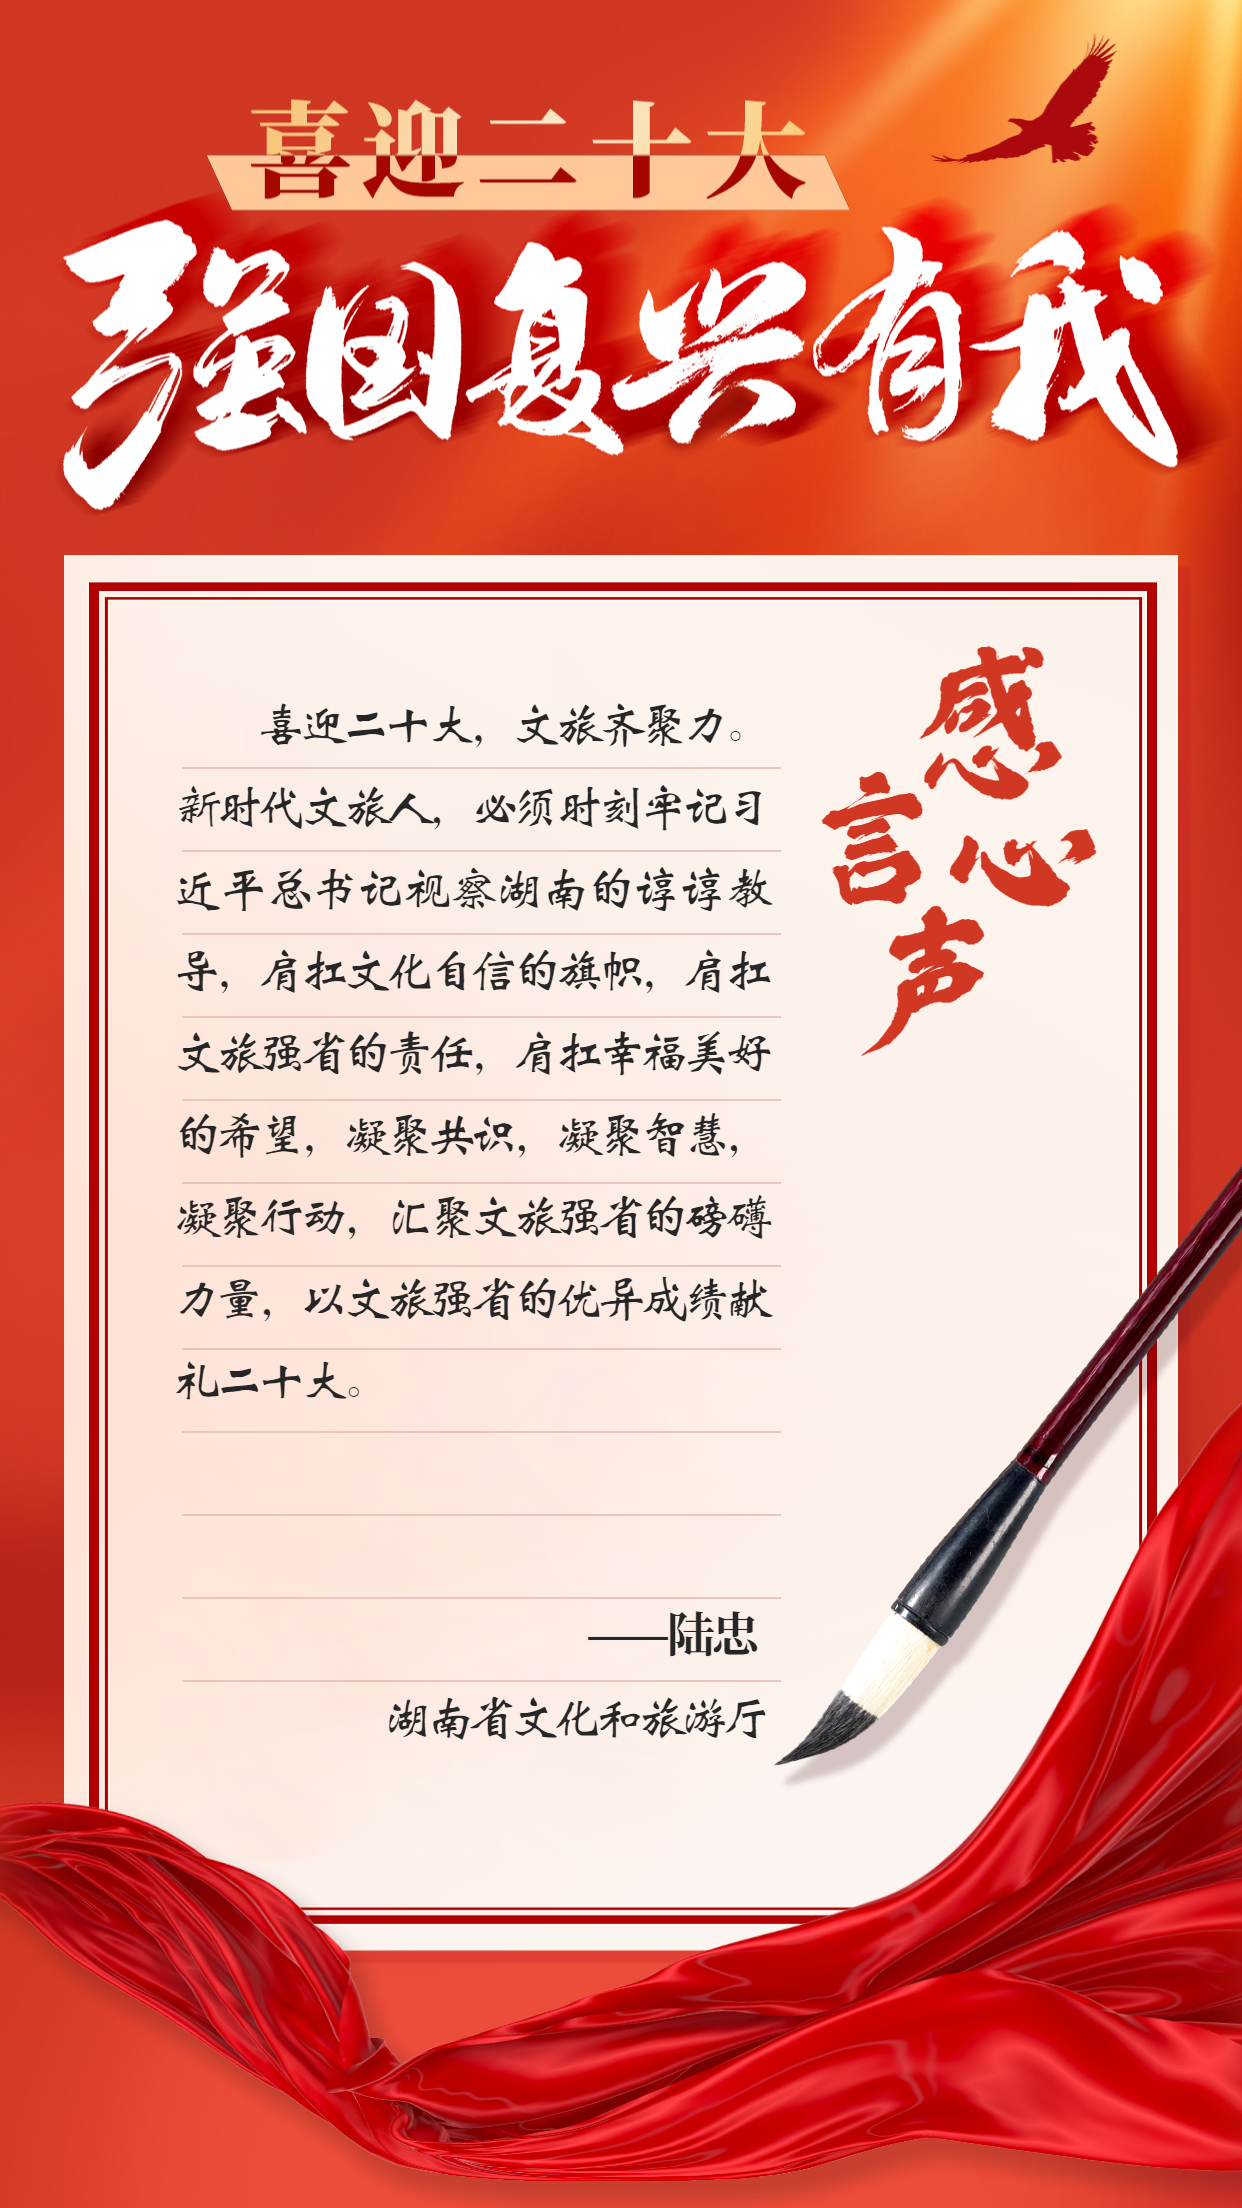 喜迎二十大
强国复兴有我
感
言心
声
喜迎二十大，文旅齐聚力。
新时代文旅人，必须时刻牢记习
近平总书记视察湖南的谆谆教
导，肩扛文化自信的旗帜，肩扛
文旅强省的责任，肩扛幸福美好
的希望，凝聚共识，凝聚智慧，
凝聚行动，汇聚文旅强省的磅礴
力量，以文旅强省的优异成绩献
礼二十大。
——陆忠
湖南省文化和旅游厅